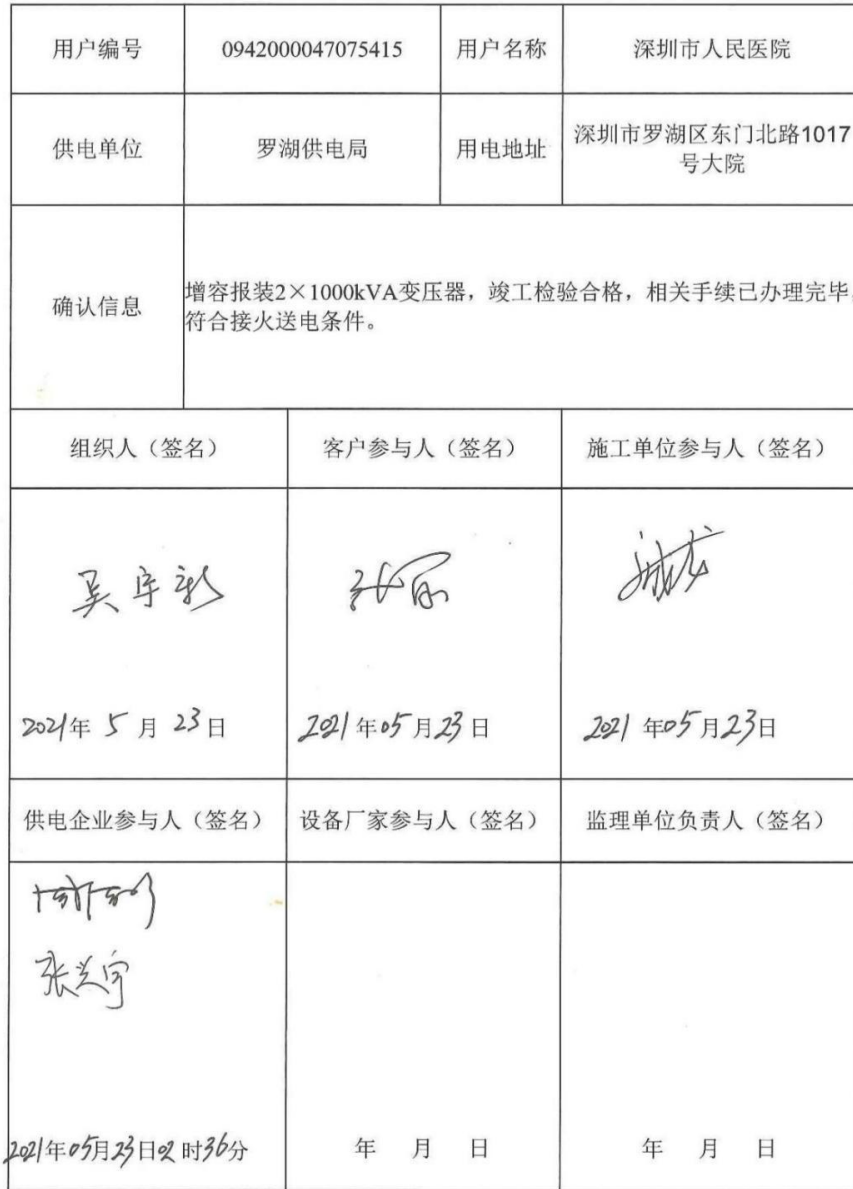 用户编号
0942000047075415
用户名称
深圳市人民医院
供电单位
罗湖供电局
用电地址
深圳市罗湖区东门北路1017
号大院
确认信息
增容报装2×1000kVA变压器，竣工检验合格，相关手续已办理完毕，
符合接火送电条件。
组织人（签名）
客户参与人（签名）
施工单位参与人（签名）
吴宇彰
2021年 5 月 23 日
2021 年 05 月 23 日
2021 年 05 月 23 日
供电企业参与人（签名）
设备厂家参与人（签名）
监理单位负责人（签名）
张兰宇
2021年05月23日02时36分
年 月 日
年 月 日